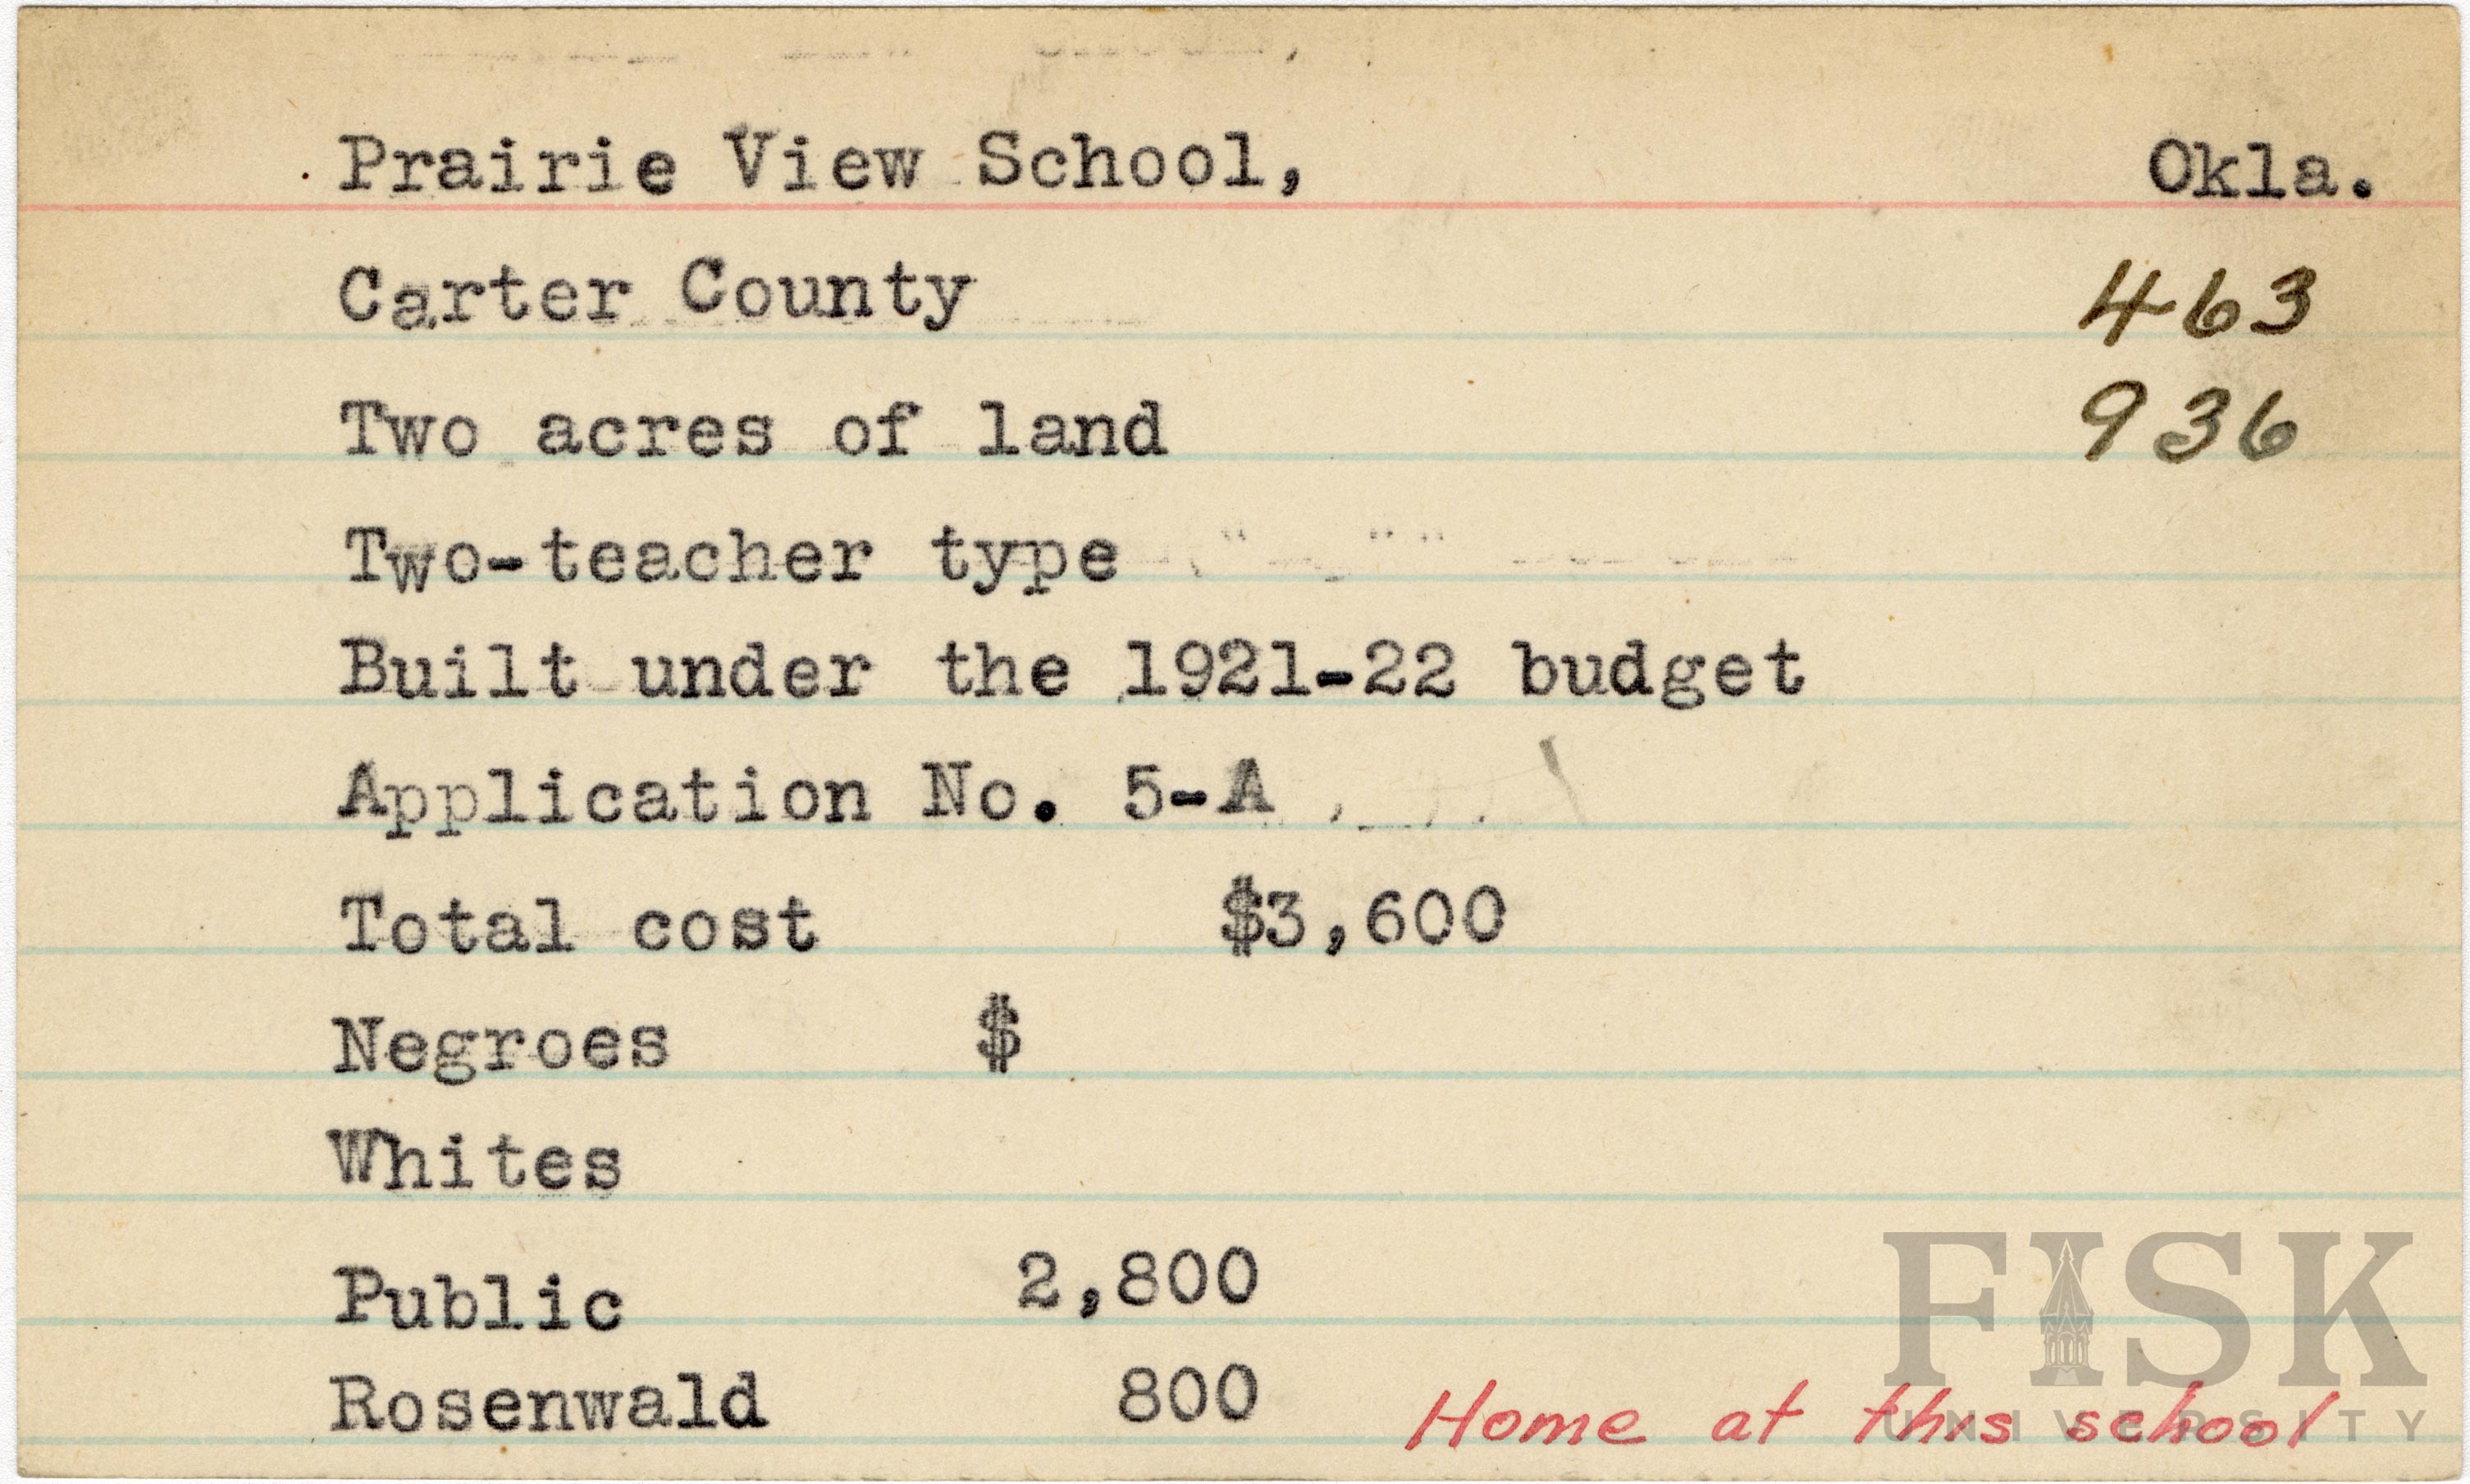 Prairie View School, Okla.
Carter County 463
Two acres of land 936
Two-teacher type
Built under the 1921-22 budget
Application No. 5-A
Total cost $3,600
Negroes $
Whites
Public 2,800
Rosenwald 800 Home at this school
FISK
UNIVERSITY